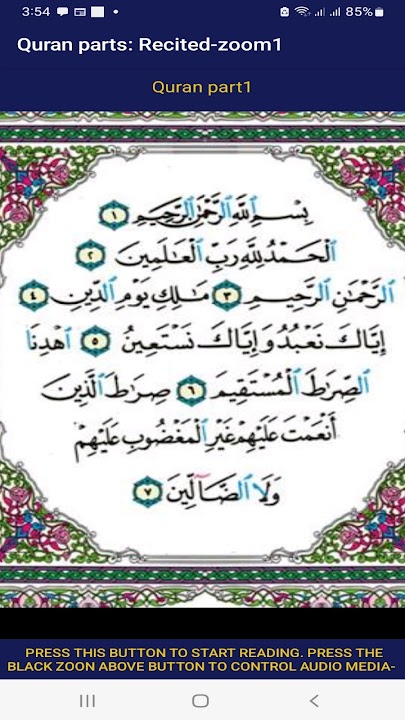 3:54
85%
Quran parts: Recited-zoom1
Quran part1
بِسْمِ اللَّهِ الرَّحْمَٰنِ الرَّحِيمِ ١
الْحَمْدُ لِلَّهِ رَبِّ الْعَالَمِينَ ٢
الرَّحْمَٰنِ الرَّحِيمِ ٣ مَالِكِ يَوْمِ الدِّينِ ٤
إِيَّاكَ نَعْبُدُ وَإِيَّاكَ نَسْتَعِينُ ٥ اهْدِنَا
الصِّرَاطَ الْمُسْتَقِيمَ ٦ صِرَاطَ الَّذِينَ
أَنْعَمْتَ عَلَيْهِمْ غَيْرِ الْمَغْضُوبِ عَلَيْهِمْ
وَلَا الضَّآلِّينَ ٧
PRESS THIS BUTTON TO START READING. PRESS THE
BLACK ZOON ABOVE BUTTON TO CONTROL AUDIO MEDIA-